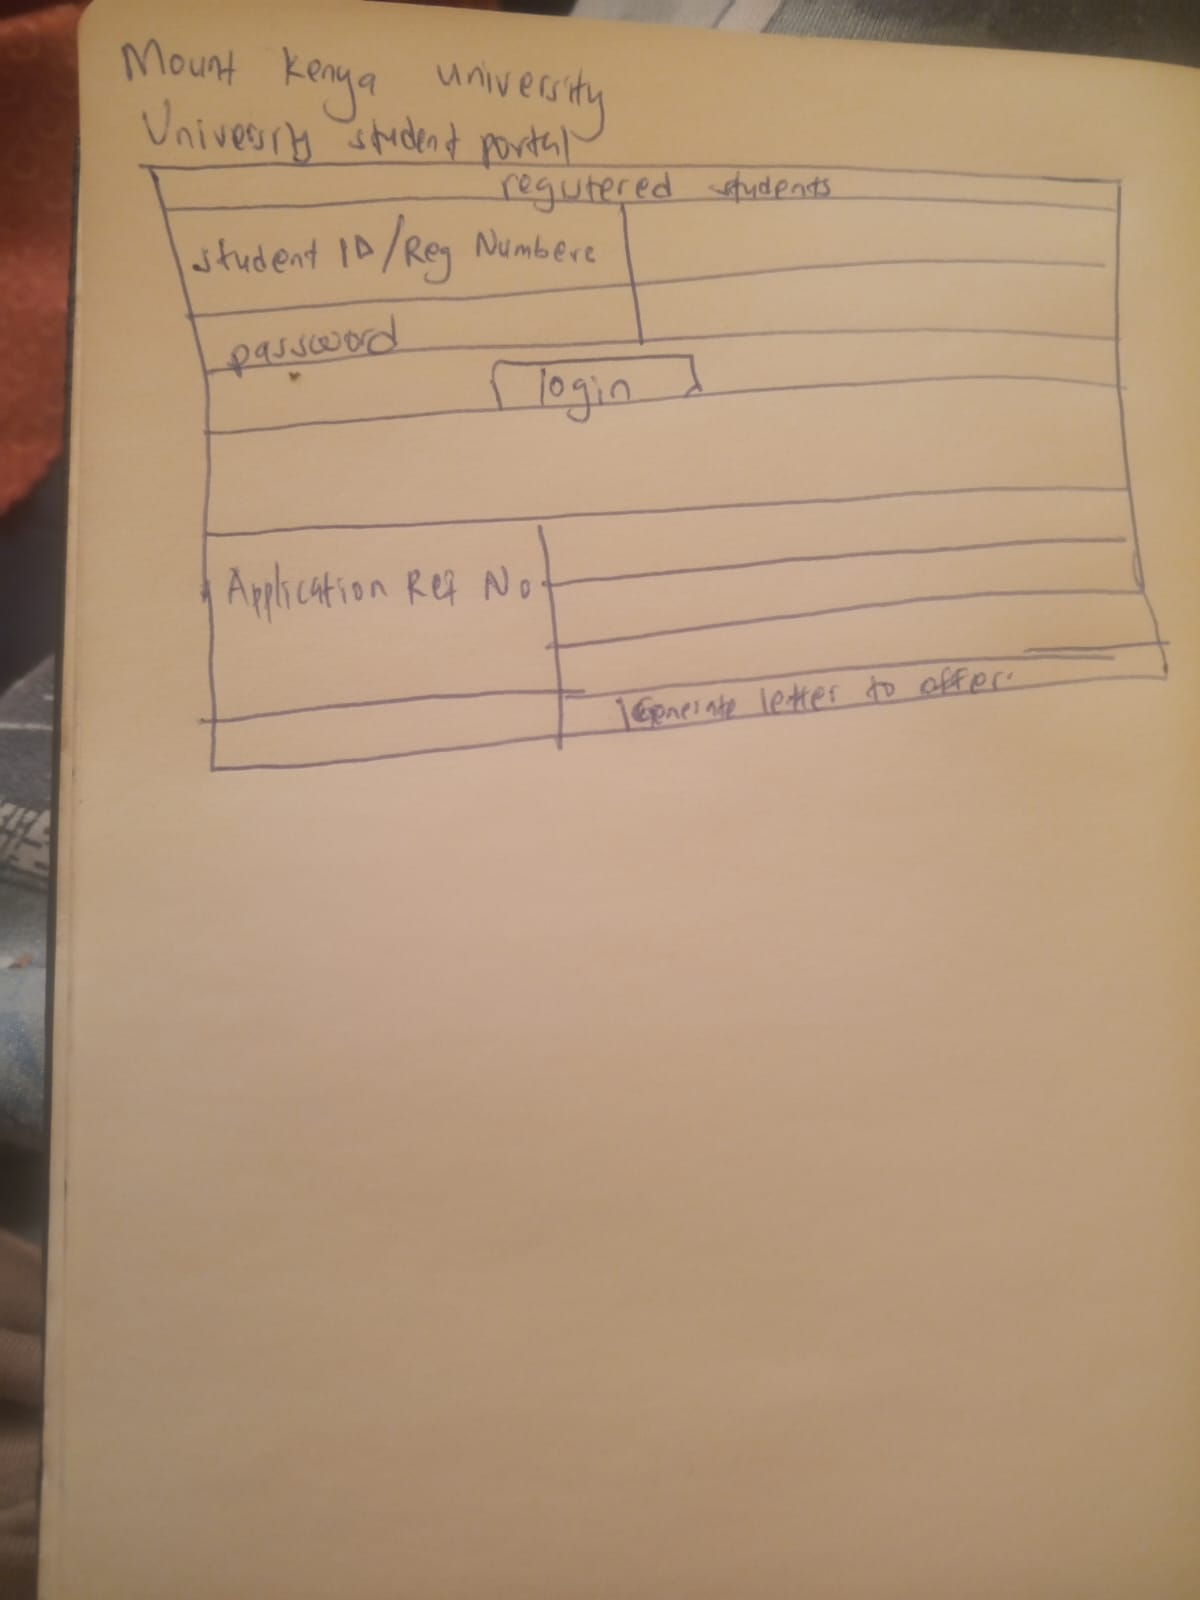 Mount Kenya university
University student portal
registered students
student ID/Reg Numbere
password
login
Application Ref No
Generate letter to offer.